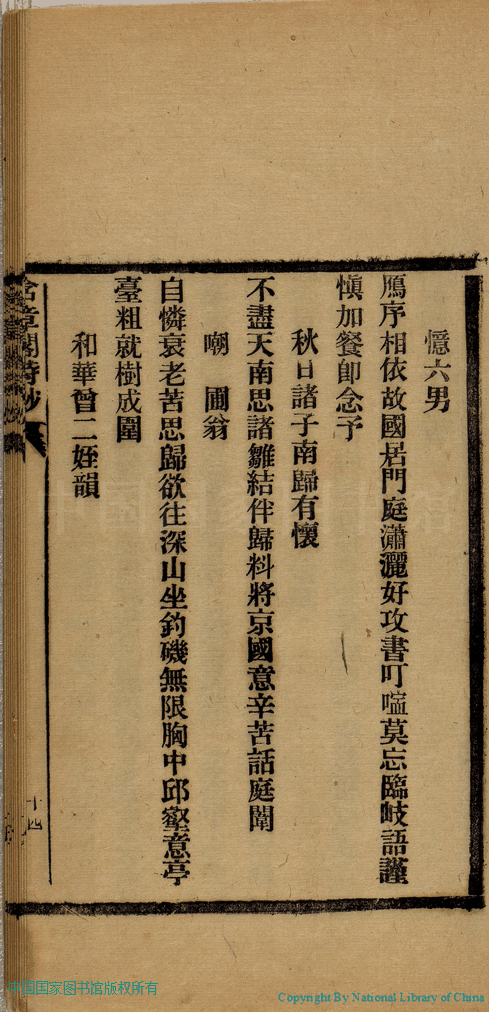 憶六男
鴈序相依故國居門庭瀟灑好攻書叮嚀莫忘臨岐語謹
愼加餐卽念予
秋日諸子南歸有懷
不盡天南思諸雛結伴歸料將京國意辛苦話庭闈
嘲圃翁
自憐衰老苦思歸欲往深山坐釣磯無限胸中邱壑意亭
臺粗就樹成圍
和華曾二姪韻
含章閣詩鈔
十四
中国国家图书馆版权所有
Copyright By National Library of China